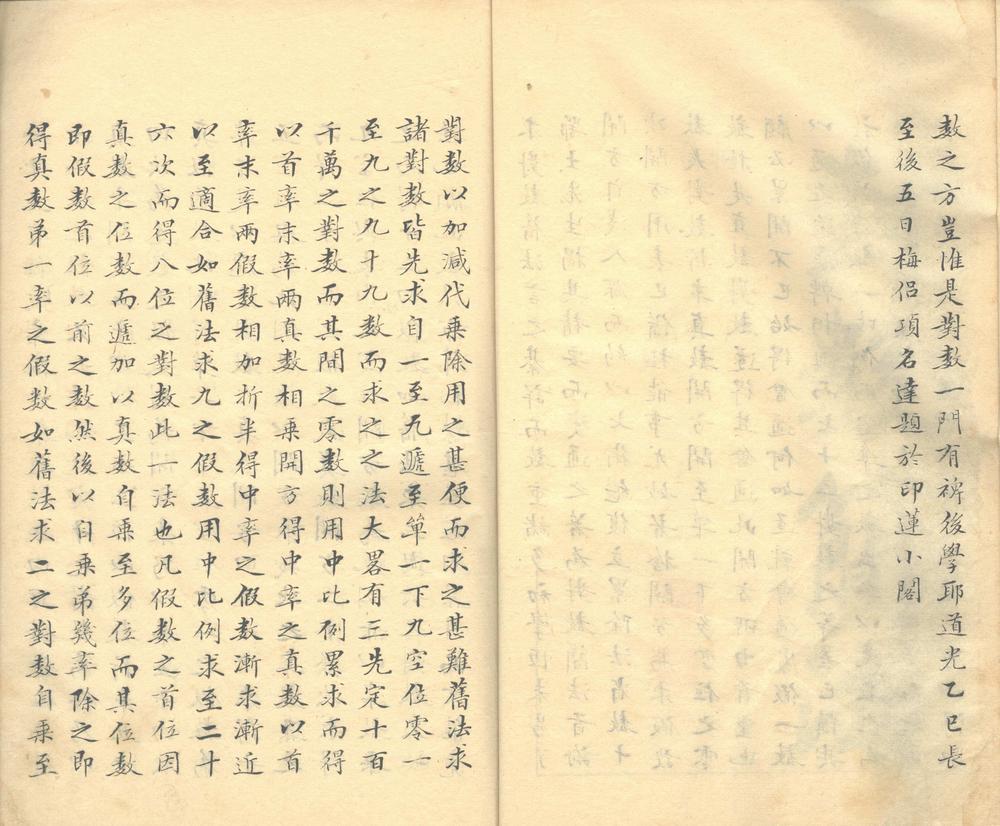 數之方豈惟是對數一門有裨後學耶道光乙巳長
至後五日梅侣項名達題於印蓮小閣
對數以加減代乗除用之甚便而求之甚難舊法求
諸對數皆先求自一至九遞至單一下九空位零一
至九之九十九數而求之之法大畧有三先定十百
千萬之對數而其間之零數則用中比例累求而得
以首率末率兩真數相乗開方得中率之真數以首
率末率兩假數相加折半得中率之假數漸求漸近
以至適合如舊法求九之假數用中比例求至二十
六次而得八位之對數此一法也凡假數之首位因
真數之位數而遞加以真數自乗至多位而其位數
即假數首位以前之數然後以自乗弟幾率除之即
得真數弟一率之假數如舊法求二之對數自乗至